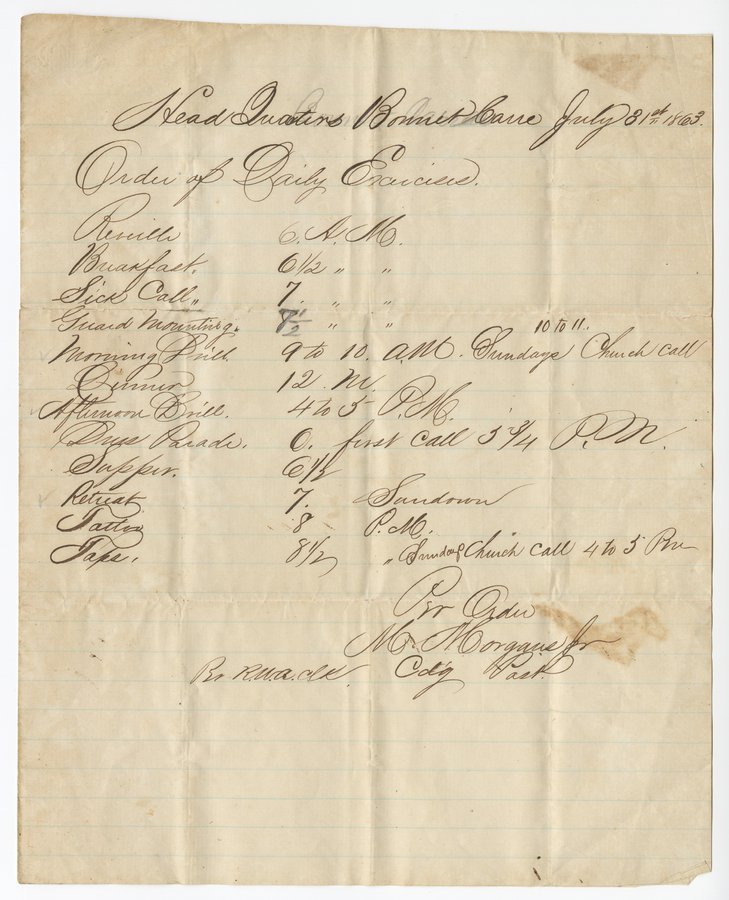 Head Quaters Bonnet Carre July 31st 1863.
Order of Daily Exercises.
Reveille 6. A. M.
Breakfast. 6 1/2 " "
Sick Call " 7. " "
Guard Mounting. 7 1/2 " "
Morning Drill. 9 to 10. A.M. Sundays 10 to 11. Church Call
Dinner 12. M.
Afternoon Drill. 4 to 5 P.M.
Dress Parade. 6. first call 5 3/4 P.M.
Supper. 6 1/2
Retreat 7. Sundown
Tattoo 8 P.M.
Taps. 8 1/2 " Sundays Church Call 4 to 5 Pm
Per Order
M. Morgans Jr
Cdg Post.